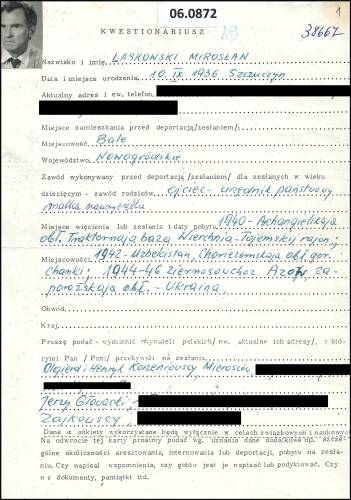 06.0872
1
KWESTIONARIUSZ 19 38667
Nazwisko i imię, LASKOWSKI MIROSŁAW
Data i miejsce urodzenia, 10. IX 1936 Szczuczyn
Aktualny adres i ew. telefon,
Miejsce zamieszkania przed deportacją /zesłaniem/:
Miejscowość, Bale
Województwo, Nowogródzkie
Zawód wykonywany przed deportacją /zesłaniem/ dla zesłanych w wieku
dziecięcym - zawód rodziców, ojciec - urzędnik państwowy
matka nauczycielka
Miejsce więzienia lub zesłania i daty pobytu, 1940 - Archangielskaja
obł. Traktornaja baza Wierchnia-Tojemskij rajon,
Miejscowość, 1942 - Uzbekistan, Choriezemskaja obł. gor.
chanki; 1944-46 ziernosowchoz Azow, za-
porożskaja obł. - Ukraina
Obwód,
Kraj
Proszę podać - wymienić obywateli polskich/ ew. aktualne ich adresy/, z któ-
rymi Pan /Pani/ przebywali na zesłaniu,
Olgierd i Henryk Korzeniowscy
Jerzy Głowacki,
Zajkowscy
Dane z ankiety wykorzystane będą wyłącznie w celach związanych i naukowych.
Na odwrocie tej karty prosimy podać wg. uznania dane dodatkowe np. szcze-
gólne okoliczności aresztowania, internowania lub deportacji, pobytu na zesła-
niu. Czy napisał wspomnienia, czy gotów jest je napisać lub podyktować. Czy
ma dokumenty, pamiątki itd.